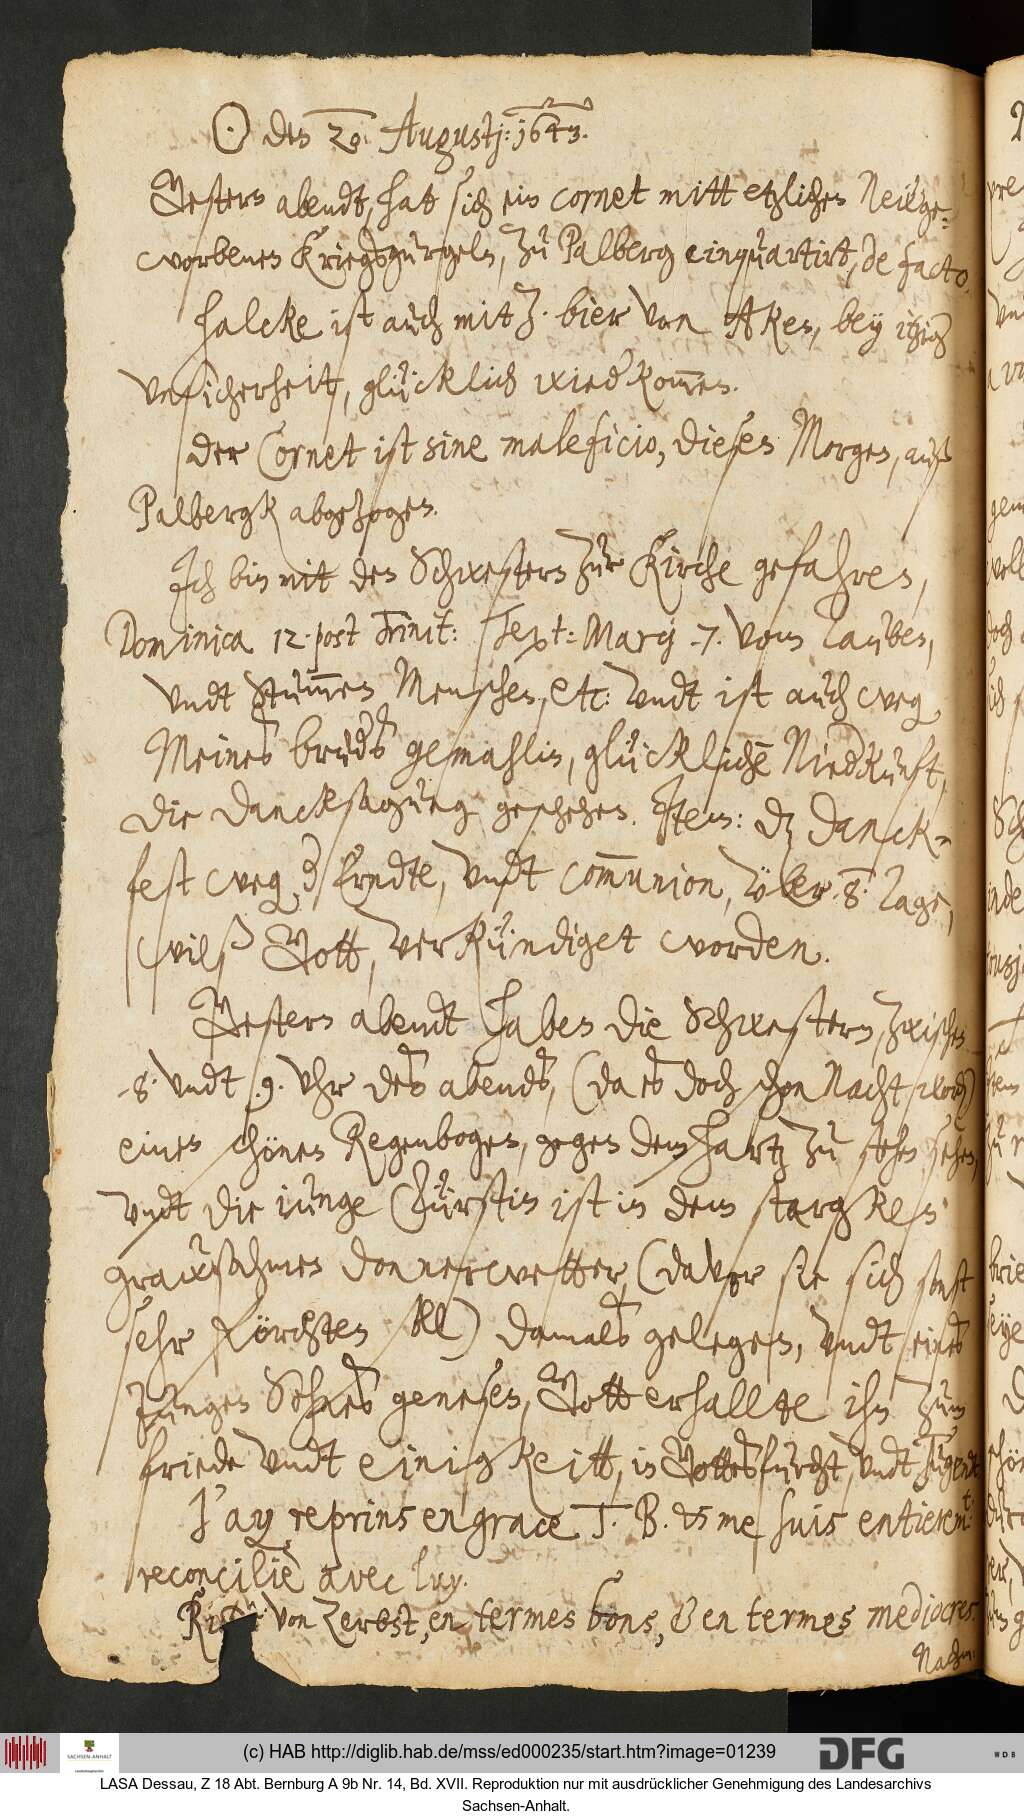 ☉ den 20. Augustj: 1643.
Gestern abendt, hat sich ein cornet mitt etzlichen Neẅge-
worbenen Kriegßgurgeln, zu Palberg einquartirt, de facto.
Halcke ist auch mit Z. bier von Aken, bey itzig
unsicherheit, glücklich wied kom̅en.
der Cornet ist sine maleficio, dieses Morgen, auß
Palbergk abgezogen.
Ich bin mit den Schwestern zur Kirche gefahren,
Dominica 12. post Trinit: Text: Marcj 7. vom Tauben,
undt Stum̅en Menschen, etc: undt ist auch weg.
Meines brud's gemahlin, glückliche Niedkunft,
die dancksagung geschehen. Item: dz danck-
fest weg. d' Erndte, undt com̅union, über .8. Tage,
wilß Gott, verkündiget worden.
Gestern abendt haben die Schwestern, zwischen
.8. undt .9. Uhr des abends, (da es doch schon Nacht war)
einen schönen Regenbogen, gegen dem Hartz zu stehen sehen,
undt die iunge Fürstin ist in dem starcken
grawsahmen donnerwetter, (davor sie sich sonst
sehr förchten soll) damals gelegen, undt eines
Jungen Sohnes genesen, Gott erhallte ihn zum
friede undt einigkeitt, in Gottesfurcht, undt Tugendt
J'ay reprins en grace T. B. & me suis entierem̅t:
reconcilié avec luy.
von Zerbst, en termes bons, & en termes mediocres.
Nachm:
(c) HAB http://diglib.hab.de/mss/ed000235/start.htm?image=01239
SACHSEN-ANHALT
DFG
WDB
LASA Dessau, Z 18 Abt. Bernburg A 9b Nr. 14, Bd. XVII. Reproduktion nur mit ausdrücklicher Genehmigung des Landesarchivs
Sachsen-Anhalt.